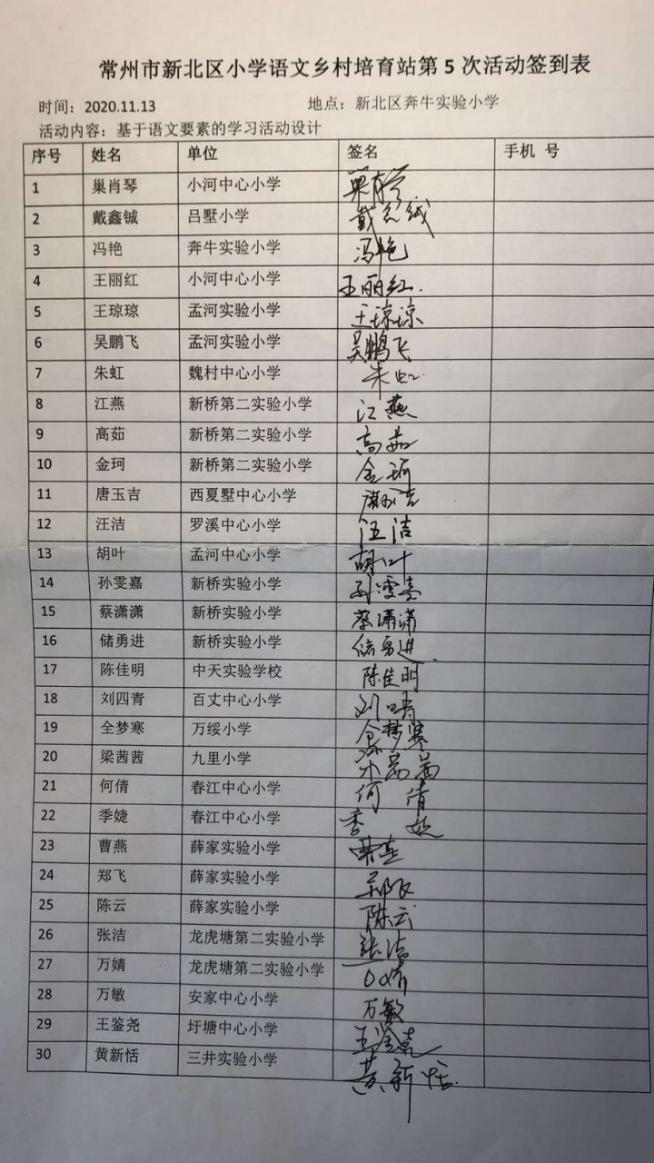 常州市新北区小学语文乡村培育站第 5 次活动签到表
时间：2020.11.13 地点：新北区奔牛实验小学
活动内容：基于语文要素的学习活动设计
序号 姓名 单位 签名 手机 号
1 巢肖琴 小河中心小学 巢肖琴
2 戴鑫铖 吕墅小学 戴鑫铖
3 冯艳 奔牛实验小学 冯艳
4 王丽红 小河中心小学 王丽红.
5 王琼琼 孟河实验小学 王琼琼
6 吴鹏飞 孟河实验小学 吴鹏飞
7 朱虹 魏村中心小学 朱虹
8 江燕 新桥第二实验小学 江燕
9 高茹 新桥第二实验小学 高茹
10 金珂 新桥第二实验小学 金珂
11 唐玉吉 西夏墅中心小学 唐玉吉
12 汪洁 罗溪中心小学 汪洁
13 胡叶 孟河中心小学 胡叶
14 孙雯嘉 新桥实验小学 孙雯嘉
15 蔡潇潇 新桥实验小学 蔡潇潇
16 储勇进 新桥实验小学 储勇进
17 陈佳明 中天实验学校 陈佳明
18 刘四青 百丈中心小学 刘四青
19 全梦寒 万绥小学 全梦寒
20 梁茜茜 九里小学 梁茜茜
21 何倩 春江中心小学 何倩
22 季婕 春江中心小学 季婕
23 曹燕 薛家实验小学 曹燕
24 郑飞 薛家实验小学 郑飞
25 陈云 薛家实验小学 陈云
26 张洁 龙虎塘第二实验小学 张洁
27 万婧 龙虎塘第二实验小学 万婧
28 万敏 安家中心小学 万敏
29 王鉴尧 圩塘中心小学 王鉴尧
30 黄新恬 三井实验小学 黄新恬